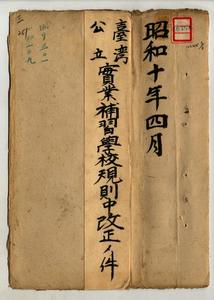 昭和十年四月
臺灣公立實業補習學校規則中改正ノ件
三